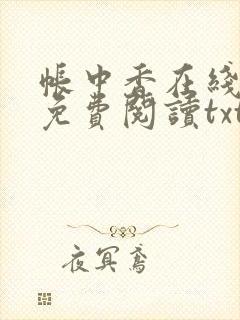 帳中香在綫
免費閱讀txt
夜冥鳶